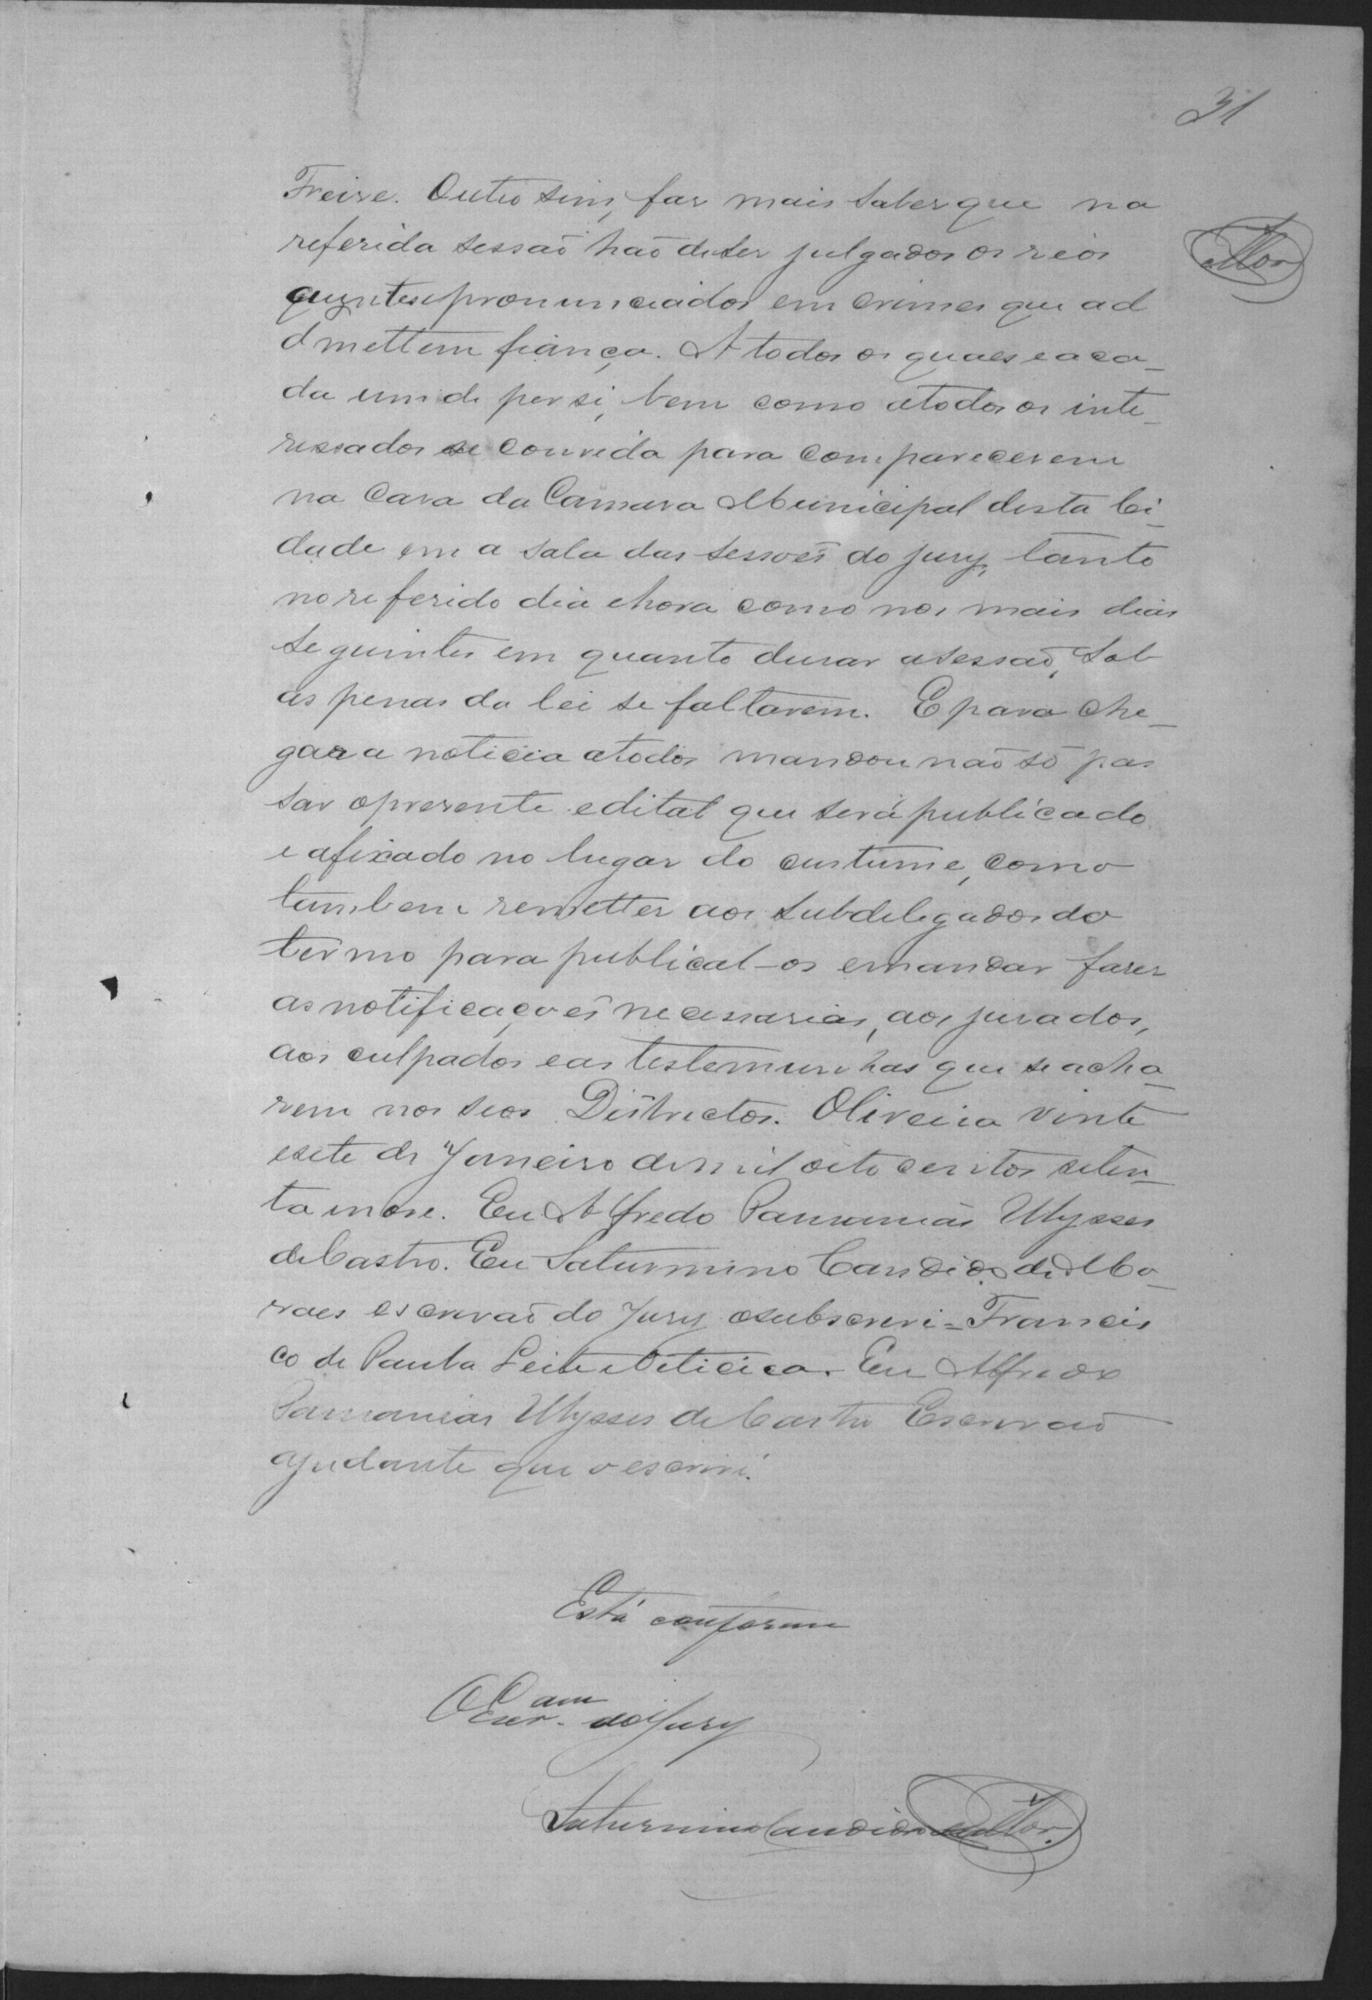 31
Mor
Freire. Outro sim, faz mais saber que na
referida sessaõ haõ de ser julgados os reos
pronunciados em crimes que ad
dmettem fiança. A todos os quaes e a ca_
da um de per si, bem como a todos os inte_
ressados se convida para comparecerem
na Casa da Camara Municipal desta Ci_
dade em a sala das sessoẽs do jury, tanto
no referido dia e hora como nos mais dias
seguintes em quanto durar a sessaõ, sob
as penas da lei se faltarem. E para che_
gar a noticia a todos mandou naõ só pas
sar o presente edital que será publicado
e afixado no lugar do custume, como
tambem remetter aos subdelegados do
termo para publical-os e mandar fazer
as notificaçoẽs necessarias, aos jurados,
aos culpados e as testemunhas que se acha_
rem nos seos Districtos. Oliveira vinte
e sete de Janeiro de mil oito centos seten_
ta e nove. Eu Alfredo Ulysses
de Castro. Eu Saturnino Candido de Mo_
raes escrivaõ do Jury o subscrevi = Francis
co de Paula Leite e Oiticica. Eu Alfredo
Ulysses de Castro Escrivaõ
ajudante que o escrevi.
Está conforme
O Escr.am do Jury
Saturnino Candido de Mor.